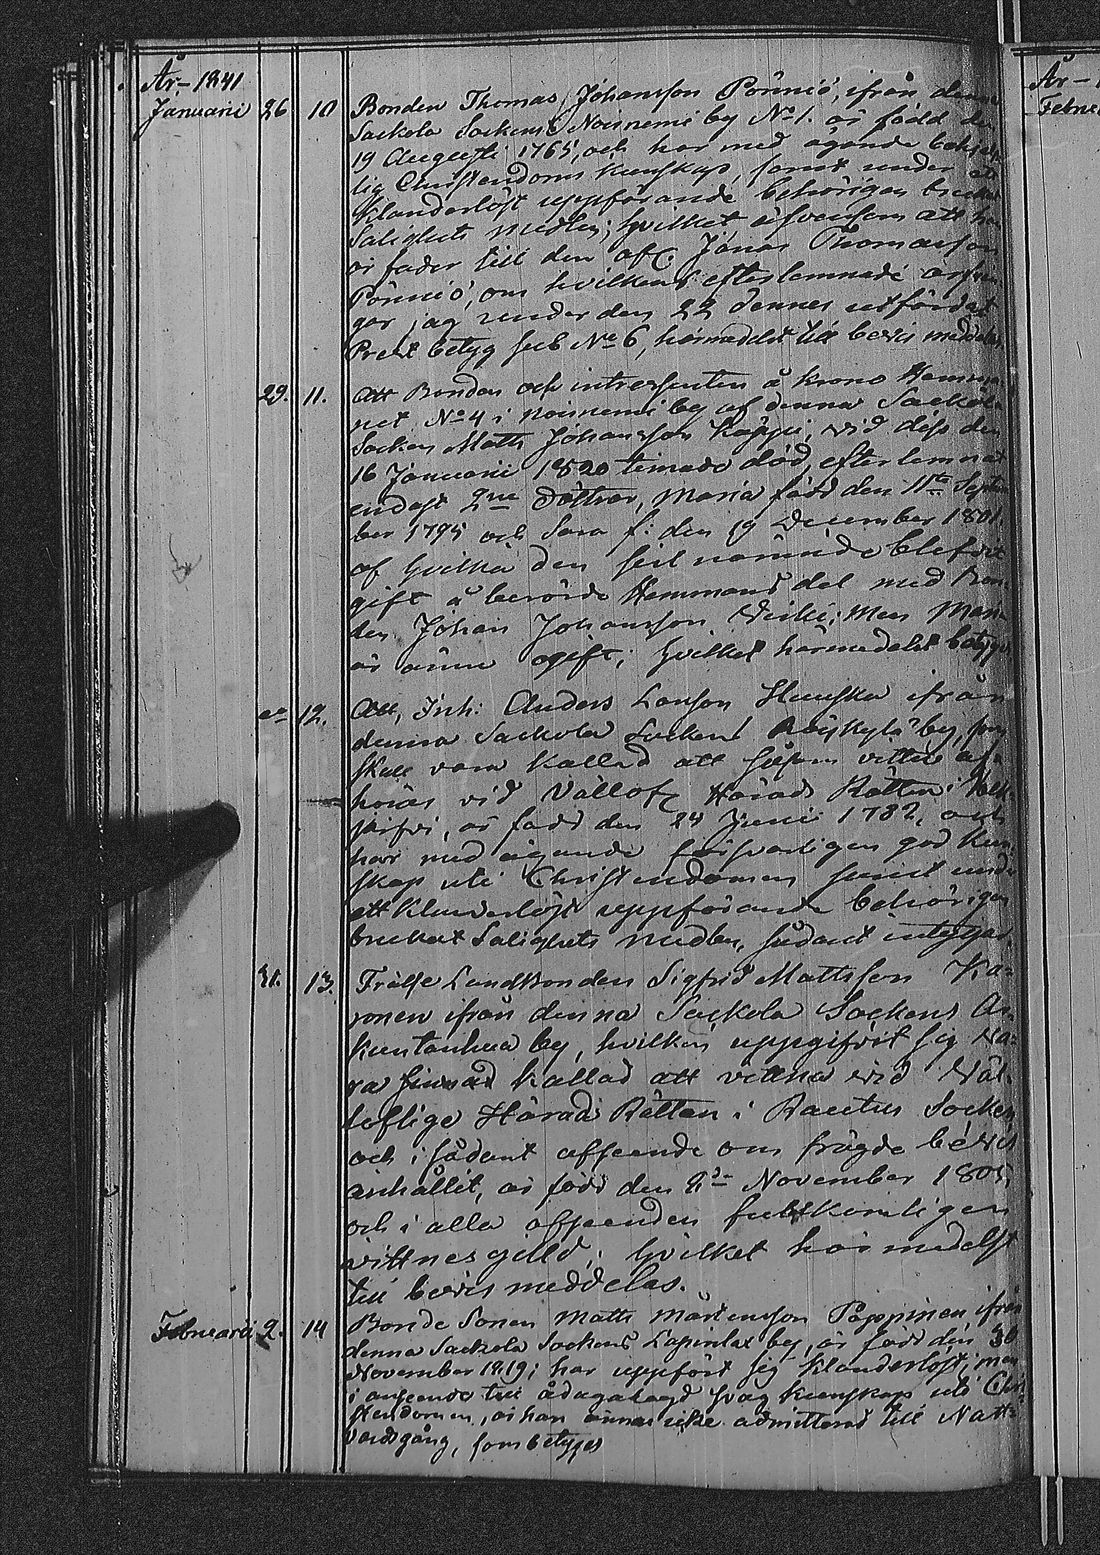 År - 1841
Januarii 26 10 Bonden Thomas Johansson Pönniö, ifrån denna
Sackola Sockens Noisnemi by No 1. är född d.
19 Augusti 1765, och har med ägande behör-
lig Christendoms kunskap, samt under ett
Klanderlöst uppförande behörigen brukat
Salighets medlen; hvilket äfvensom att han
är fader till den afl. Jonas Thomasson
Pönniö, om hvilkens efterlemnade arfvin-
gar jag under den 22 dennes utfärdat
Prest betyg sub No 6, härmedelst till bevis meddelas.
29. 11. Att Bonden och intressenten å krono Hemma-
net No 4 i Noisnemi by af denna Sackola
Socken Matts Johansson Käppi, vid dess den
16 Januarii 1820 timade död, efterlemnat
endast 2ne Döttrar, Maria född den 11te Septem
ber 1795 och Sara f: den 19 December 1801.
af hvilka den sist nämnde blefvit
gift å berörde Hemmans del med Bon-
den Johan Johansson men Maria
är ännu ogift; hvilket härmedelst betygas
12. Att, Inh: Anders Larsson Hunska ifrån
denna Sackola Sockens Röyskylä by, som
skall vara kallad att såsom vittne af-
höras vid Vällofl Härads Rätten i Walk-
järfvi, är född den 24 Junii 1782, och
har med ägande försvarligen god kun-
skap uti Christendomen samt under
ett Klanderlöst uppförande behörigen
brukat Salighets medlen, sådant intygar.
31. 13. Frälse Landbonden Sigfrid Mattsson Ka-
ronen ifrån denna Sackola Sockens
by, hvilken uppgifvit sig va-
ra kallad att vittna vid Väl-
loflige Härads Rätten i Rautus Socken
och i sådant afseende om frägde bevis
anhållit, är född den 2dn November 1805,
och i alla afseenden fullkomligen
vittnesgilld; hvilket härmedelst
till bevis meddelas.
Februarii 2. 14 Bonde Sonen Matts Mårtensson Pappinen ifrån
denna Sackola Sockens Lapinlax by, är född den 30
November 1819; har uppfört sig klanderlöst; men
i anseende till ådagalagd svag kunskap uti Chri
stendomen, är han ännu icke admitterad till Natt-
vardsgång, som betygas
År - 1
Febru